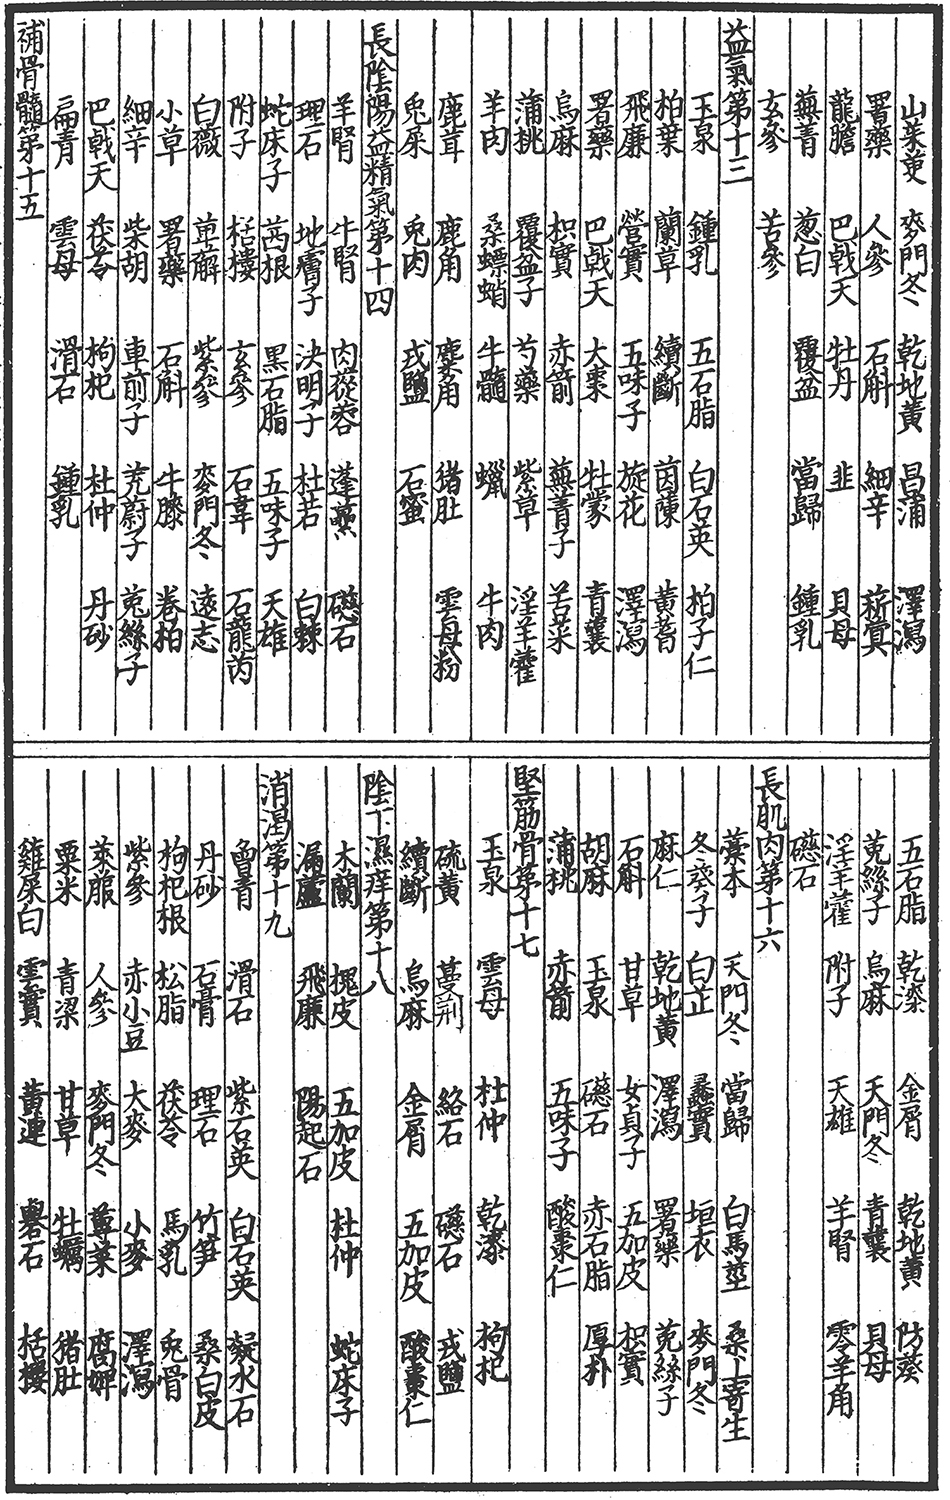 山茱萸 麥門冬 乾地黃 昌蒲 澤瀉
署藥 人參 石斛 細辛 菥蓂
龍膽 巴戟天 牡丹 韭 貝母
蕪青 葱白 覆盆 當歸 鍾乳
玄參 苦參
益氣第十三
玉泉 鍾乳 五石脂 白石英 柏子仁
柏葉 蘭草 續斷 茵陳 黃蓍
飛廉 營實 五味子 旋花 澤瀉
署藥 巴戟天 大棗 牡蒙 青蘘
烏麻 枳實 赤箭 蕪菁子 苦菜
蒲桃 覆盆子 芍藥 紫草 淫羊藿
羊肉 桑螵蛸 牛髓 蠟 牛肉
鹿茸 鹿角 麋角 猪肚 雲母粉
兎屎 兎肉 戎鹽 石蜜
長陰陽益精氣第十四
羊腎 牛腎 肉蓯蓉 蓬蔂 磁石
理石 地膚子 決明子 杜若 白棘
蛇床子 茜根 黑石脂 五味子 天雄
附子 栝樓 玄參 石韋 石龍芮
白薇 萆薢 紫參 麥門冬 遠志
小草 署藥 石斛 牛膝 卷柏
細辛 柴胡 車前子 茺蔚子 菟絲子
巴戟天 茯苓 枸杞 杜仲 丹砂
扁青 雲母 滑石 鍾乳
補骨髓第十五
五石脂 乾漆 金屑 乾地黃 防葵
菟絲子 烏麻 天門冬 青蘘 貝母
淫羊藿 附子 天雄 羊腎 零羊角
磁石
長肌肉第十六
藁本 天門冬 當歸 白馬莖 桑上寄生
冬葵子 白芷 蠡實 垣衣 麥門冬
麻仁 乾地黃 澤瀉 署藥 菟絲子
石斛 甘草 女貞子 五加皮 枳實
胡麻 玉泉 磁石 赤石脂 厚朴
蒲桃 赤箭 五味子 酸棗仁
堅筋骨第十七
玉泉 雲母 杜仲 乾漆 枸杞
硫黃 蔓荊 絡石 磁石 戎鹽
續斷 烏麻 金屑 五加皮 酸棗仁
陰下濕痒第十八
木蘭 槐皮 五加皮 杜仲 蛇床子
漏蘆 飛廉 陽起石
消渴第十九
曾青 滑石 紫石英 白石英 凝水石
丹砂 石膏 理石 竹笋 桑白皮
枸杞根 松脂 茯苓 馬乳 兎骨
紫參 赤小豆 大麥 小麥 澤瀉
萊服 人參 麥門冬 蓴菜 腐婢
粟米 青梁 甘草 牡蠣 猪肚
雞屎白 雲實 黃連 礜石 栝樓